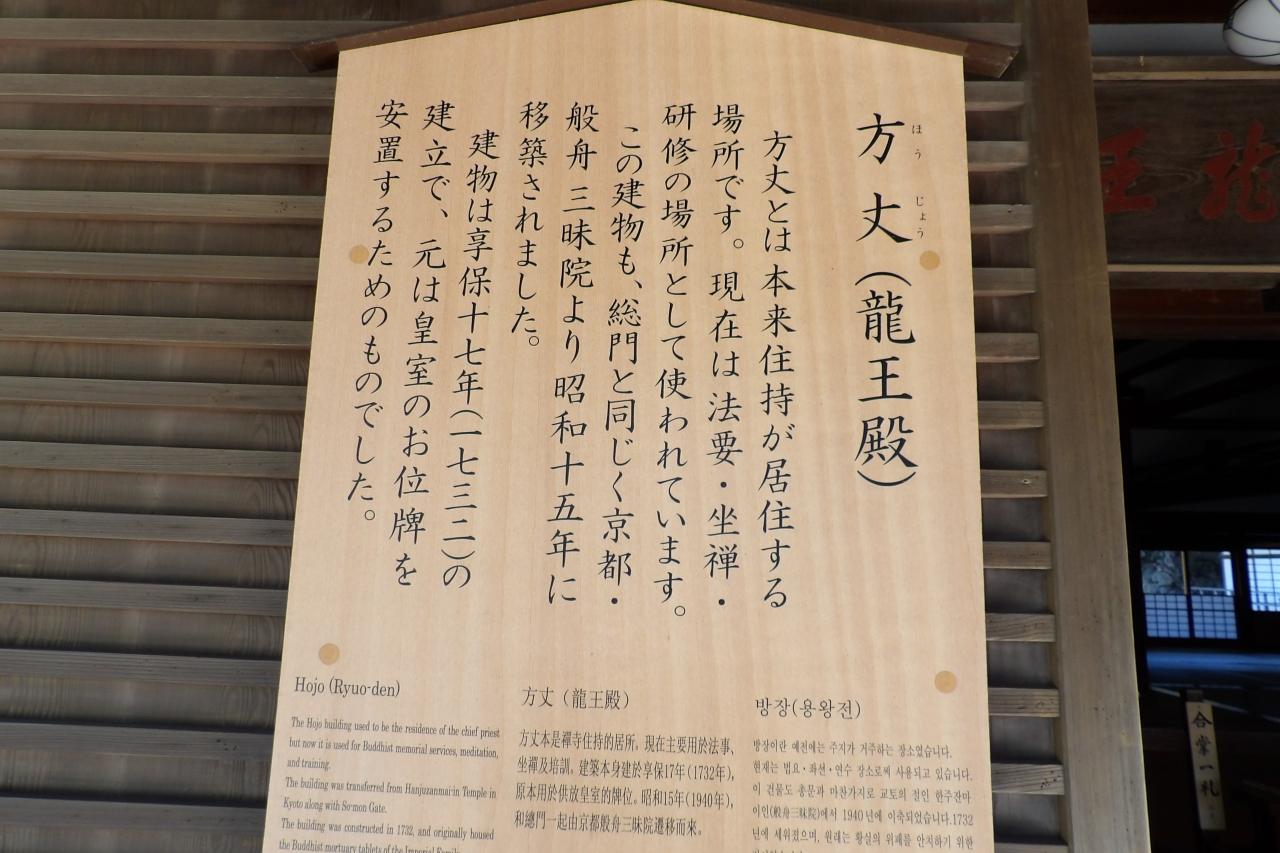 方丈（龍王殿）
ほう じょう
方丈とは本来住持が居住する
場所です。現在は法要・坐禅・
研修の場所として使われています。
この建物も、総門と同じく京都・
般舟三昧院より昭和十五年に
移築されました。
建物は享保十七年（一七三二）の
建立で、元は皇室のお位牌を
安置するためのものでした。
Hojo (Ryuo-den)
The Hojo building used to be the residence of the chief priest
but now it is used for Buddhist memorial services, meditation,
and training.
The building was transferred from Hanjuzanmai-in Temple in
Kyoto along with So-mon Gate.
The building was constructed in 1732, and originally housed
the Buddhist mortuary tablets of the Imperial
方丈（龍王殿）
方丈本是禪寺住持的居所。現在主要用於法事、
坐禪及培訓。建築本身建於享保17年(1732年),
原本用於供放皇室的牌位。昭和15年(1940年),
和總門一起由京都般舟三昧院遷移而來。
방장(용왕전)
방장이란 예전에는 주지가 거주하는 장소였습니다.
현재는 법요・좌선・연수 장소로써 사용되고 있습니다.
이 건물도 총문과 마찬가지로 교토의 절인 한주잔마
이인(般舟三昧院)에서 1940년에 이축되었습니다.1732
년에 세워졌으며, 원래는 황실의 위패를 안치하기 위한
龍王
合掌一礼